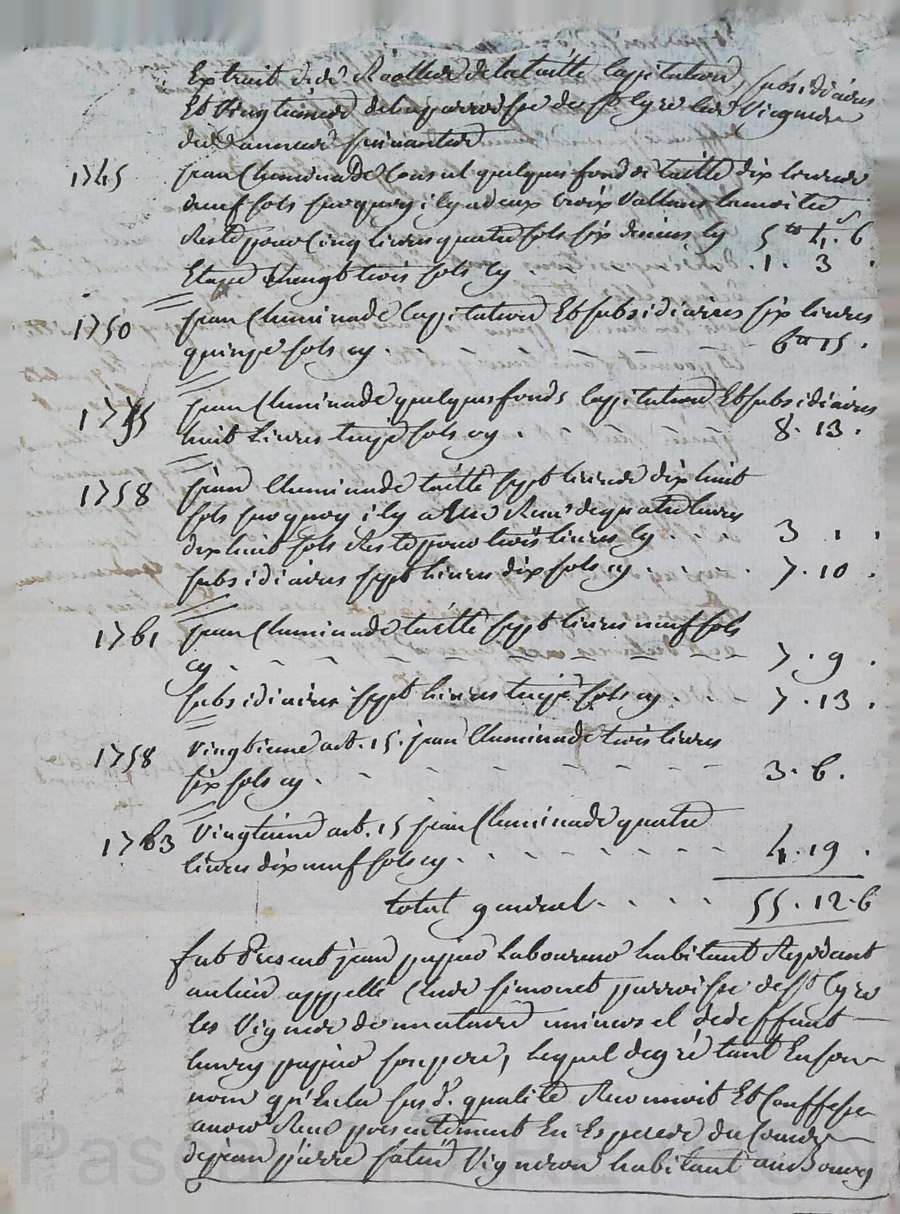 Extrait des Roolles de la taille Cappitation, subsidiaires
Et Vingtieme de la parroisse de St Cyre les Vignes
des années suivantes
1745 jean Cluminade Consul quelques fonds taille dix livres
neuf sols surquoy il y a deux Vallant la moitié
Reste pour Cinq livres quatre sols six deniers cy 5tt 4s 6
Et vingt trois sols cy 1. 3 .
1750 jean Cluminade Cappitation Et subsidiaires six livres
quinze sols cy 6tt 15 .
1755 jean Cluminade quelques fonds Cappitation Et subsidiaires
huit Livres treize sols cy . 8. 13 .
1758 jean Cluminade taille sept livres dix huit
sols surquoy il y a de quatre livres
dix huit sols Reste pour trois livres cy . . . 3 . .
subsidiaires sept livres dix sols cy . . . . 7. 10 .
1761 jean Cluminade taille sept livres neuf sols
cy . 7. 9 .
subsidiaires sept livres treize sols cy . 7. 13 .
1758 Vingtieme art. 15. jean Cluminade trois livres
six sols cy . 3. 6 .
1763 Vingtieme art. 15 jean Cluminade quatre
livres dix neuf sols cy . 4. 19 .
total general . . . . 55. 12. 6
fut Present jean papio Laboureur habitant Rezidant
au lieu appellé Chez Simonet parroisse de St Cyre
les Vignes de deffunt
papio son pere, Lequel de gré tant En son
nom qu'En la sus d. qualité Reconnoit Et Confesse
avoir Receu presentement En Especes du Cours
de jean pierre Vigneron habitant au Bourg
Pasc